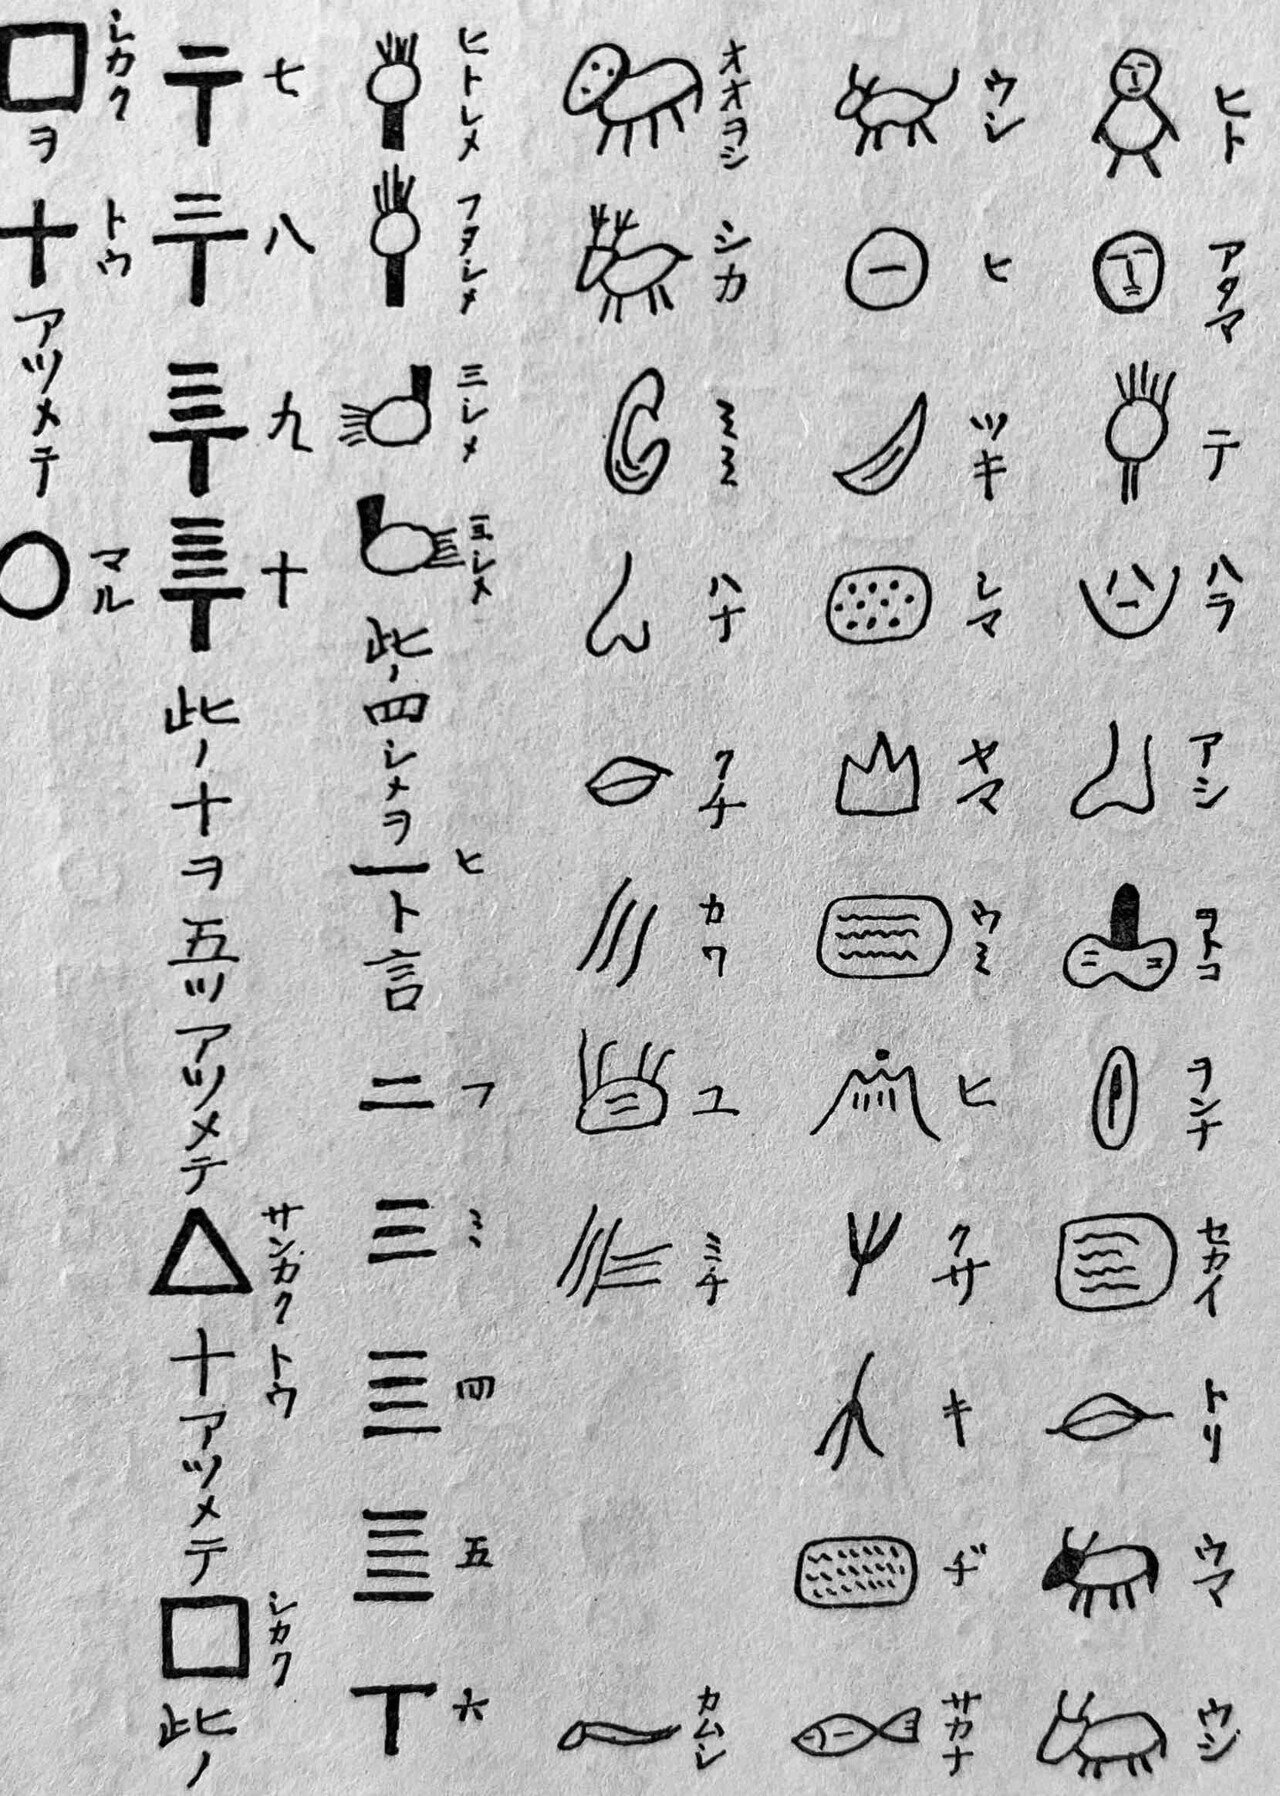 ヒト
アタマ
テ
ハラ
アシ
ヲトコ
ヲンナ
セカイ
トリ
ウマ
ウシ
ウシ
ヒ
ツキ
シマ
ヤマ
ウミ
ヒ
クサ
キ
ヂ
サカナ
オオヲシ
シカ
ミミ
ハナ
クチ
カワ
ユ
ミチ
カムシ
ヒトシメ
フタシメ
三シメ
シメ
此ノ四シメヲ
一 ヒ
ト言
二 フ
三 ミ
四
五
六
七
八
九
十
此ノ十ヲ五ツアツメテ
サンカク
十 トウ
アツメテ
シカク
此ノ
シカク
ヲ
十 トウ
アツメテ
マル